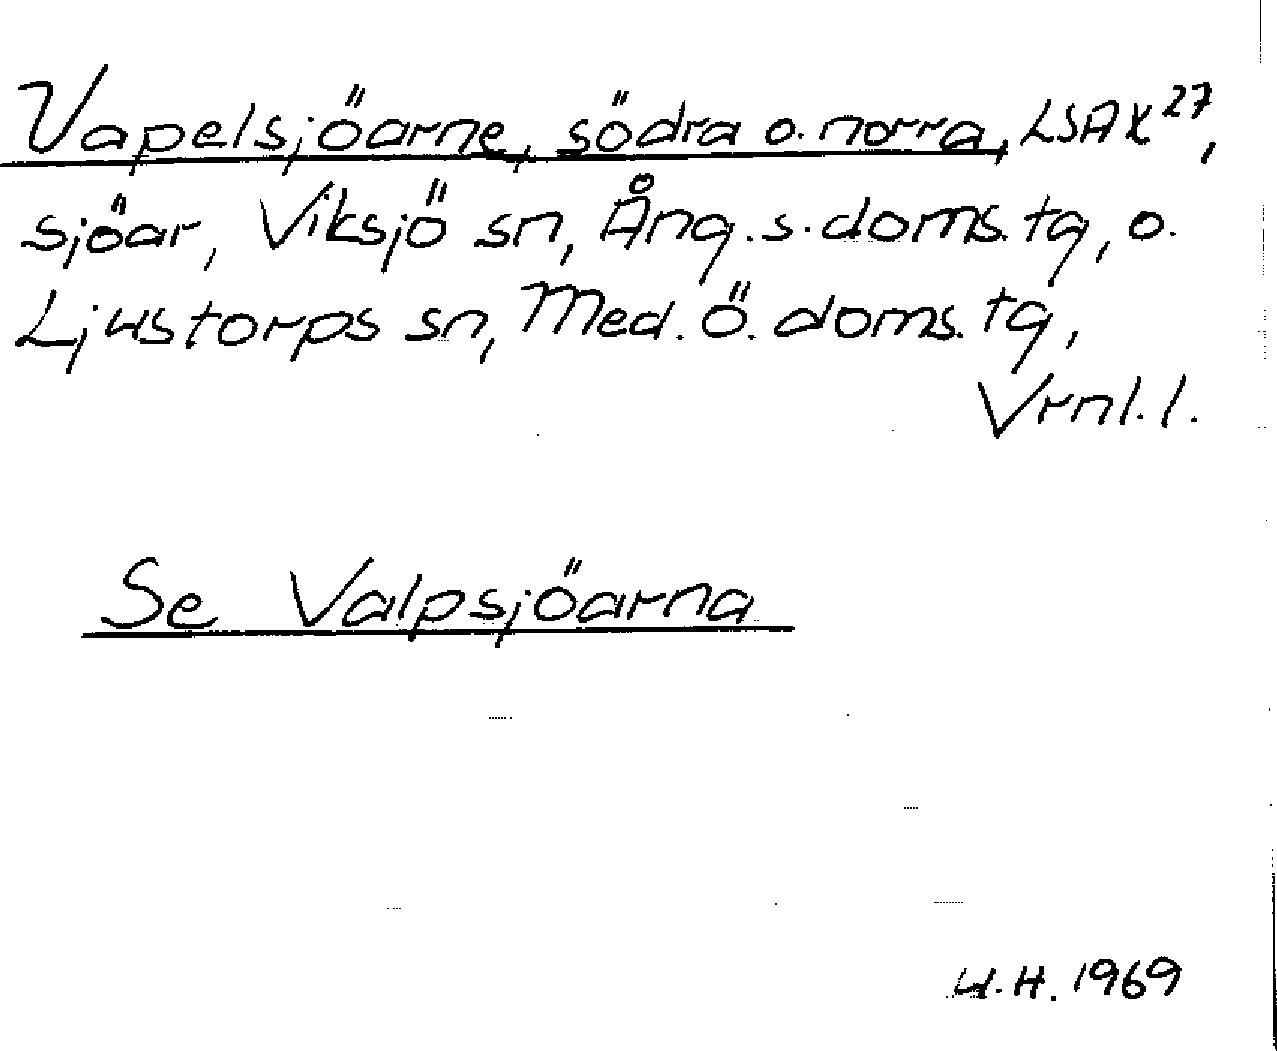 Vapelsjöarne, södra o. norra, LSA X²⁷,
sjöar, Viksjö sn, Ång. s. doms. tg, o.
Ljustorps sn, Med. Ö. doms. tg,
Vrnl. l.
Se Valpsjöarna
U.H. 1969